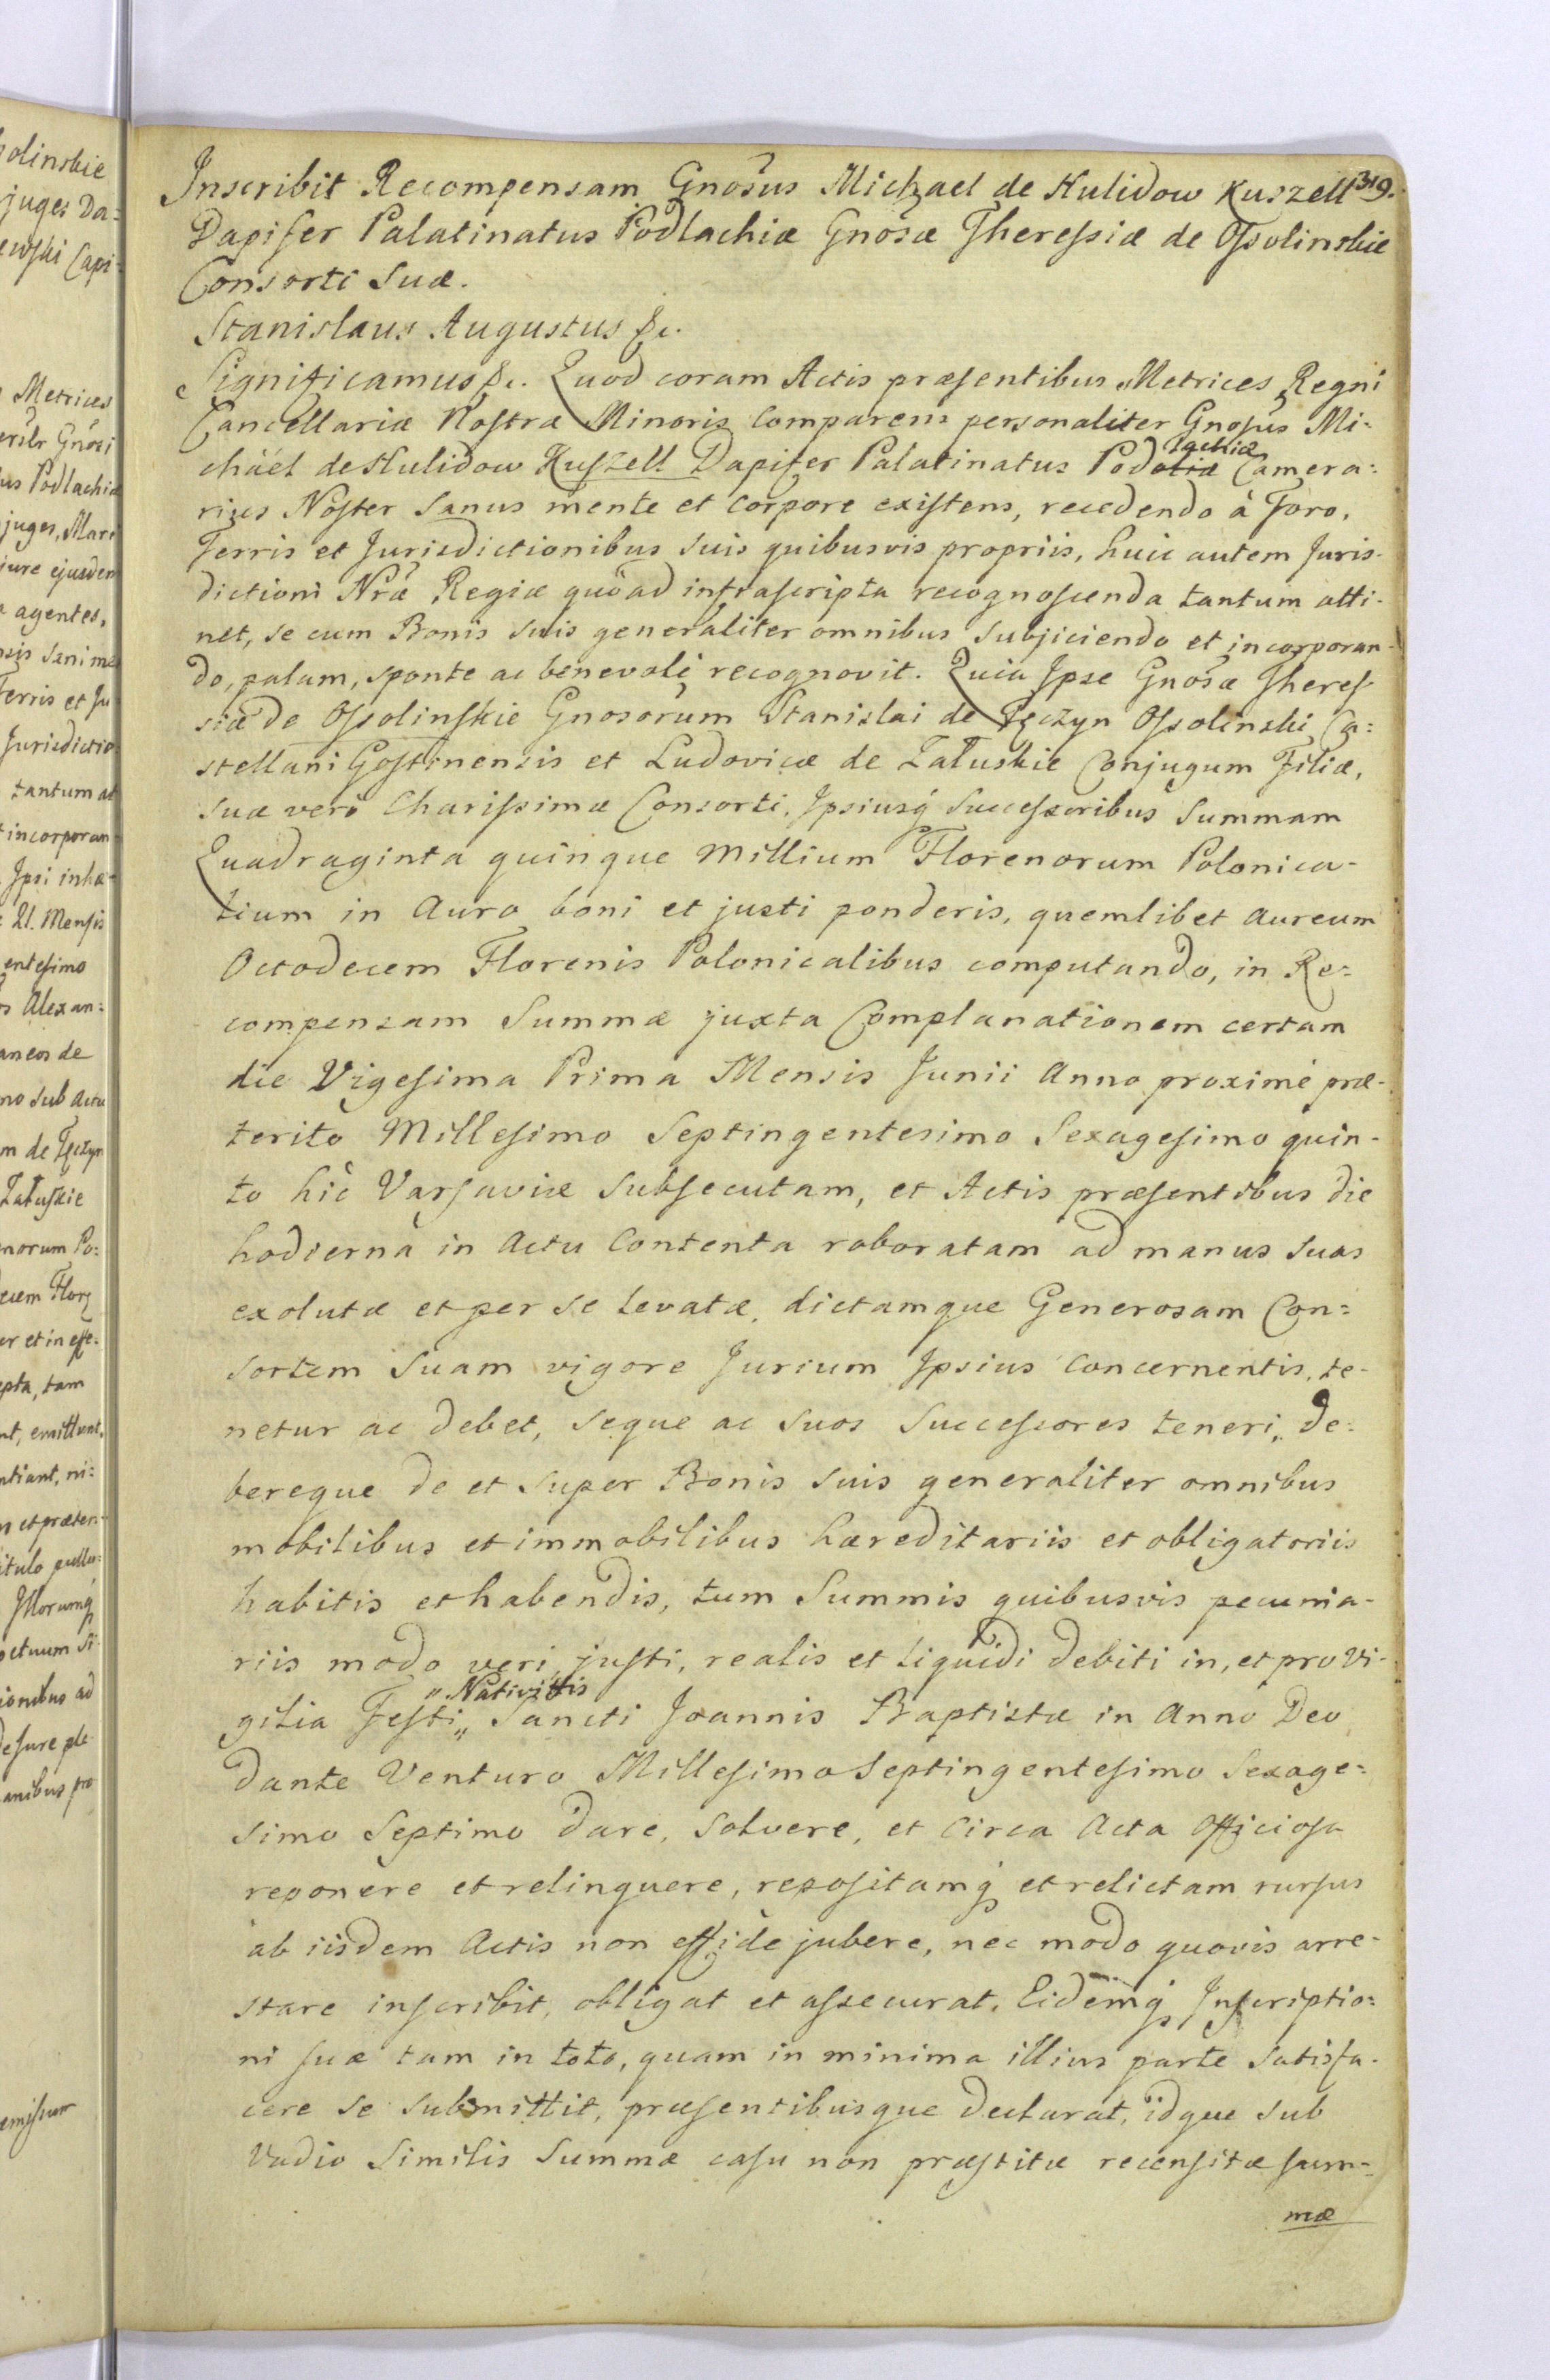 olinskie
juges Da=
ewski Capi=
Metrices
erilr Gnosi
us Podlachiæ
juges, Mari
jure ejusdem
agentes,
Terris et Ju
Jurisdictio
tantum at
incorporan
Ipsi inhæ
21. Mensis
entesimo
Alexan=
aneos de
mo sub actu
m de Tęczyn
Załuskie
norum Po=
ecem Flor
er et in effe=
epta, tam
nt, emittunt,
ntiant, ni=
et præter=
itulo pullu=
Illorumq
petuum si=
ionibus ad
esure ple
anibus pro
emissum
Inscribit Recompensam Gnosus Michael de Kulidow Kuszell 319.
Dapifer Palatinatus Podlachiæ Gnosæ Theressiæ de Ossolinskie
Consorti Suæ.
Stanislaus Augustus &c.
Significamus &c. Quod coram Actis præsentibus Metrices Regni
Cancellariæ Nostræ Minoris Comparens personaliter Gnosus Mi=
chäel de Kulidow Kuszell Dapifer Palatinatus Podoliæ lachiæ Camera=
rius Noster Sanus mente et corpore existens, recedendo à Foro,
Terris et Jurisdictionibus suis quibusvis propriis, huic autem Juris-
dictioni Nræ Regiæ quoad infrascripta recognoscenda tantum atti-
net, se cum Bonis suis generaliter omnibus subjiciendo et incorporan-
do, palam, sponte ac benevolè recognovit. Quia Ipse Gnosæ Theres-
siæ de Ossolinskie Gnosorum Stanislai de Tęczyn Ossolinski Ca=
stellani Gostinensis et Ludovicæ de Załuskie Conjugum Filiæ,
suæ verò Charissimæ Consorti, Ipsiusq́ Successoribus Summam
Quadraginta quinque Millium Florenorum Polonica-
lium in Auro boni et justi ponderis, quemlibet aureum
Octodecem Florenis Polonicalibus computando, in Re=
compensam Summæ juxta Complanationem certam
die Vigesima Prima Mensis Junii Anno proximè præ-
terito Millesimo Septingentesimo Sexagesimo quin-
to hic Varsaviæ Subsecutam, et Actis præsentibus die
hodierna in Actu Contenta roboratam ad manus suas
exolutæ et per se levatæ, dictamque Generosam Con=
sortem Suam vigore Jurium Ipsius concernentis, te-
netur ac debet, seque ac suos Successores teneri, de=
bereque de et super Bonis suis generaliter omnibus
mobilibus et immobilibus hæreditariis et obligatoriis
habitis et habendis, tum Summis quibusvis pecunia-
riis modo veri, justi, realis et liquidi debiti in, et pro Vi-
gilia Festi „ Nativittis Sancti Joannis Baptistæ in Anno Deo
dante Venturo Millesimo Septingentesimo Sexage=
simo Septimo dare, solvere, et Circa Acta Officiosa
reponere et relinquere, repositamq́ et relictam rursus
ab iisdem Actis non effide jubere, nec modo quovis arre-
stare inscribit, obligat et assecurat. Eidemq́ Inscriptio=
ni suæ tam in toto, quam in minima illius parte satisfa-
cere se submittit, præsentibusque declarat, idque sub
Vadio Similis Summæ casu non præstitæ recensitæ sum=
mæ